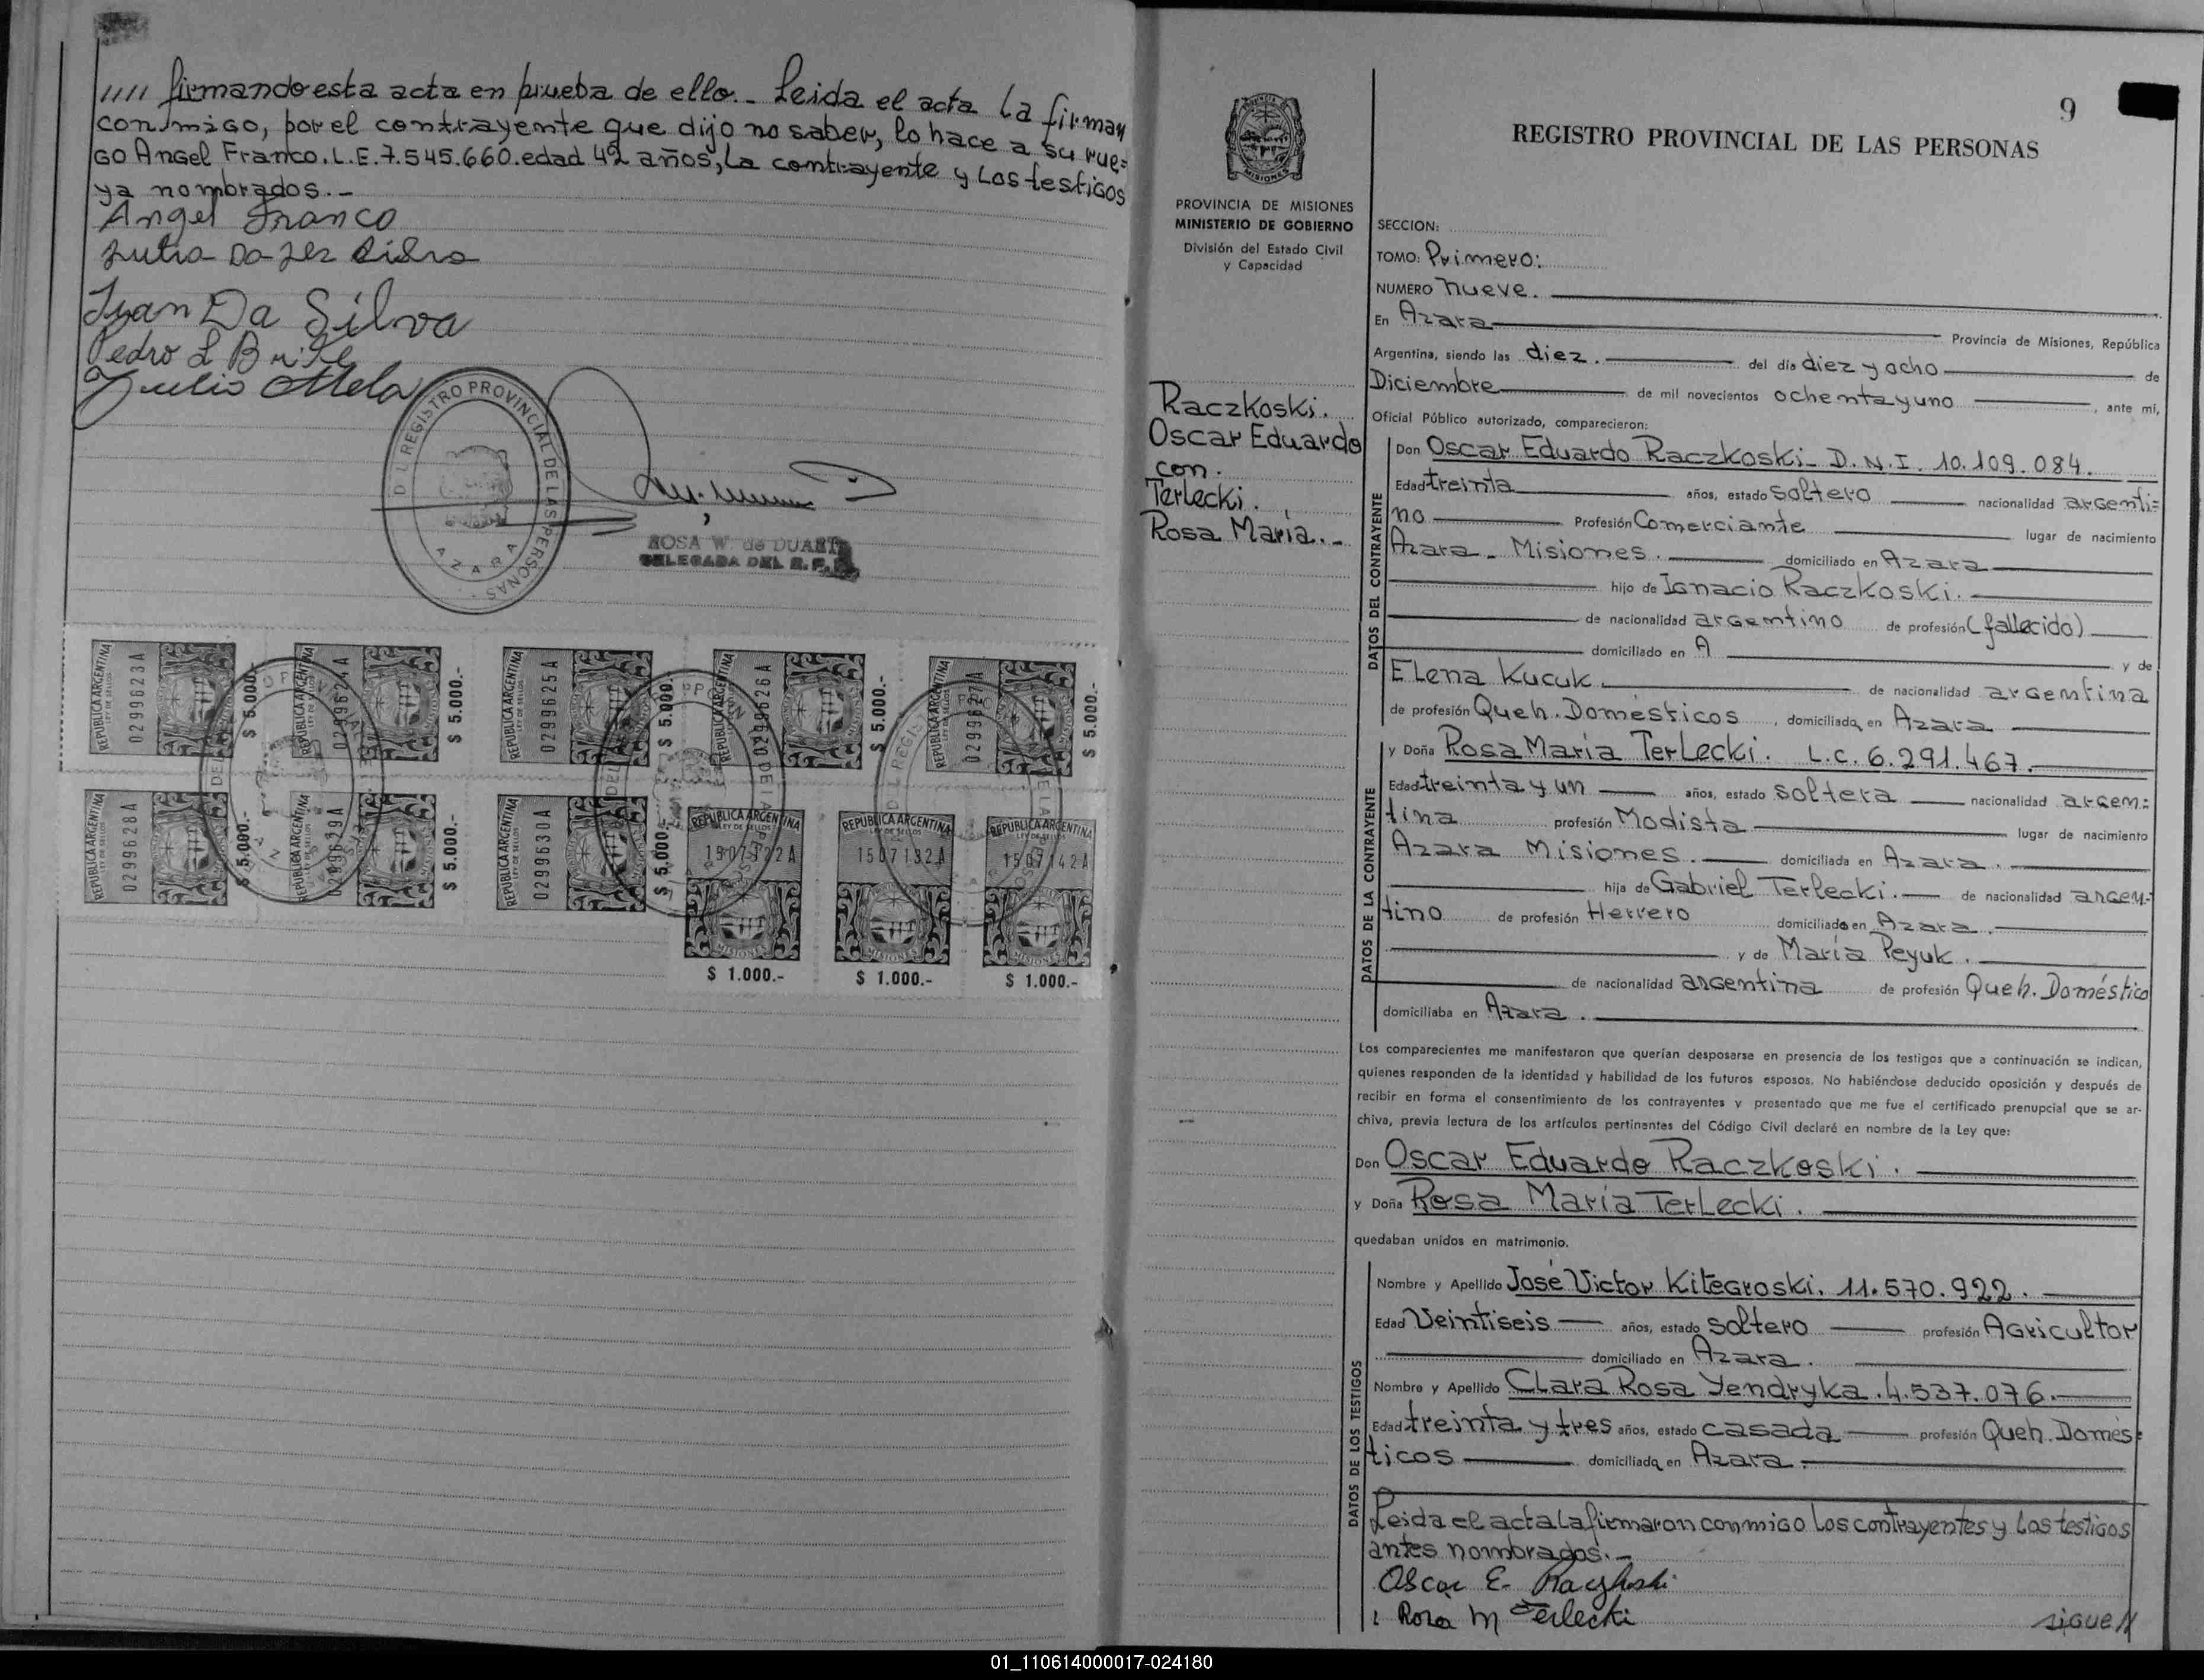 //// firmando esta acta en prueba de ello.- Leida el acta la firman
conmigo, por el contrayente que dijo no saber, lo hace a su rue=
go Angel Franco. L.E. 7.545.660. edad 42 años, la contrayente y los testigos
ya nombrados.-
Angel Franco
Juan Da Silva
Pedro L Brite
Julio Melo
REGISTRO PROVINCIAL DE LAS PERSONAS
AZARA
ROSA W. de DUARTE
DELEGADA DEL R. P.
REPUBLICA ARGENTINA LEY DE SELLOS 0299623A $ 5.000.-
REPUBLICA ARGENTINA LEY DE SELLOS 0299624A $ 5.000.-
REPUBLICA ARGENTINA LEY DE SELLOS 0299625A $ 5.000.-
REPUBLICA ARGENTINA 0299626A $ 5.000.-
REPUBLICA ARGENTINA LEY DE SELLOS 0299627A $ 5.000.-
REPUBLICA ARGENTINA LEY DE SELLOS 0299628A $ 5.000.-
REPUBLICA ARGENTINA 0299629A $ 5.000.-
REPUBLICA ARGENTINA LEY DE SELLOS 0299630A $ 5.000.-
REPUBLICA ARGENTINA LEY DE SELLOS MISIONES $ 1.000.-
REPUBLICA ARGENTINA LEY DE SELLOS 1507132A MISIONES $ 1.000.-
REPUBLICA ARGENTINA LEY DE SELLOS 1507142A MISIONES $ 1.000.-
9
REGISTRO PROVINCIAL DE LAS PERSONAS
PROVINCIA DE MISIONES
MINISTERIO DE GOBIERNO
División del Estado Civil
y Capacidad
Raczkoski.
Oscar Eduardo
con.
Terlecki.
Rosa María.-
SECCION:
TOMO: Primero:
NUMERO nueve.
En Azara Provincia de Misiones, República
Argentina, siendo las diez. del día diez y ocho de
Diciembre de mil novecientos ochenta y uno, ante mí,
Oficial Público autorizado, comparecieron:
DATOS DEL CONTRAYENTE
Don Oscar Eduardo Raczkoski- D.N.I. 10.109.084.
Edad treinta años, estado soltero nacionalidad argenti=
no Profesión Comerciante lugar de nacimiento
Azara - Misiones. domiciliado en Azara
hijo de Ignacio Raczkoski.
de nacionalidad argentino de profesión (fallecido)
domiciliado en A y de
Elena Kucuk. de nacionalidad argentina
de profesión Queh. Domésticos, domiciliada en Azara
DATOS DE LA CONTRAYENTE
y Doña Rosa María Terlecki. L.C. 6.291.467.
Edad treinta y un años, estado soltera nacionalidad argen=
tina profesión Modista lugar de nacimiento
Azara Misiones. domiciliada en Azara.
hija de Gabriel Terlecki. de nacionalidad argen-
tino de profesión Herrero domiciliado en Azara.
y de María Peyuk.
de nacionalidad argentina de profesión Queh. Doméstico
domiciliaba en Azara.
Los comparecientes me manifestaron que querían desposarse en presencia de los testigos que a continuación se indican,
quienes responden de la identidad y habilidad de los futuros esposos. No habiéndose deducido oposición y después de
recibir en forma el consentimiento de los contrayentes y presentado que me fue el certificado prenupcial que se ar-
chiva, previa lectura de los artículos pertinentes del Código Civil declaré en nombre de la Ley que:
Don Oscar Eduardo Raczkoski.
y Doña Rosa María Terlecki.
quedaban unidos en matrimonio.
DATOS DE LOS TESTIGOS
Nombre y Apellido José Victor Kitegroski. 11.570.922.
Edad Veintiseis años, estado soltero profesión Agricultor
domiciliado en Azara.
Nombre y Apellido Clara Rosa Yendryka. 4.537.076.
Edad treinta y tres años, estado casada profesión Queh. Domés=
ticos domiciliada en Azara.
Leida el acta la firmaron conmigo los contrayentes y los testigos
antes nombrados.-
Oscar E. Raczkoski
Rosa M Terlecki
sigue//
01_110614000017-024180